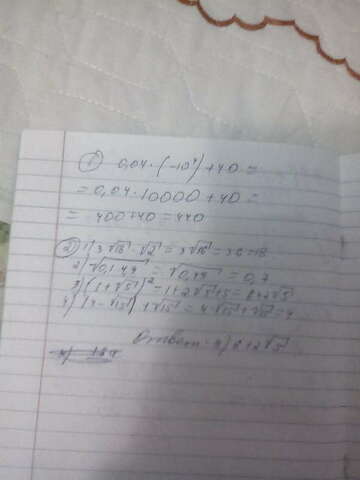 ① 0,04·(-10⁴)+40=
=0,04·10000+40=
= 400+40=440
② 1) 3√18·√2=3√36=3·6=18
2) √0,1·4,9 = √0,49 = 0,7
3) (1+√5)²=1+2√5+5=6+2√5
4) |4-√15|+√15=4-√15+√15=4
Ответ: 3) 6+2√5